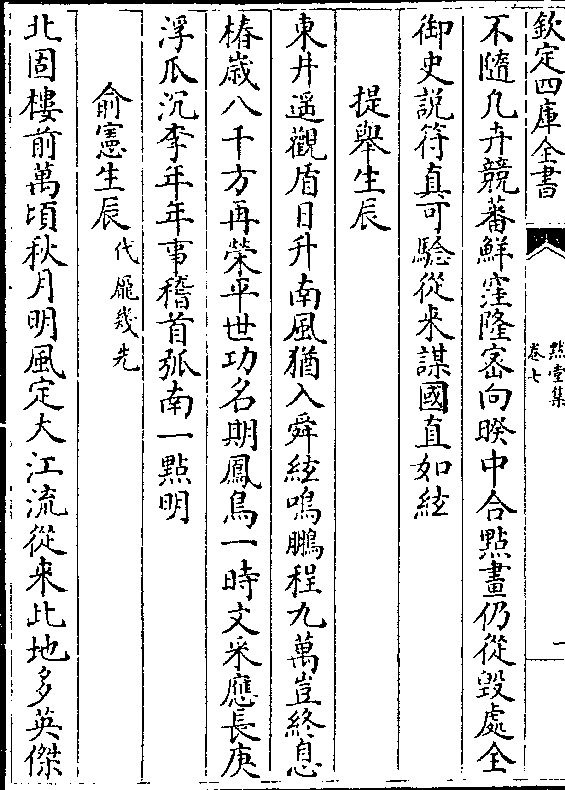 欽定四庫全書
不隨凡卉競蕃鮮窪隆宻向暌中合點畫仍從毀處全
御史説符真可驗從来謀國直如絃
提舉生辰
東井遥觀盾日升南風猶入舜絃鳴鵬程九萬豈終息
椿歲八千方再榮平世功名期鳳鳥一時文采應長庚
浮瓜沉李年年事稽首弧南一點明
俞憲生辰代龎㡬先
北固樓前萬頃秋月明風定大江流從来此地多英傑
㸃堂集
卷七
一